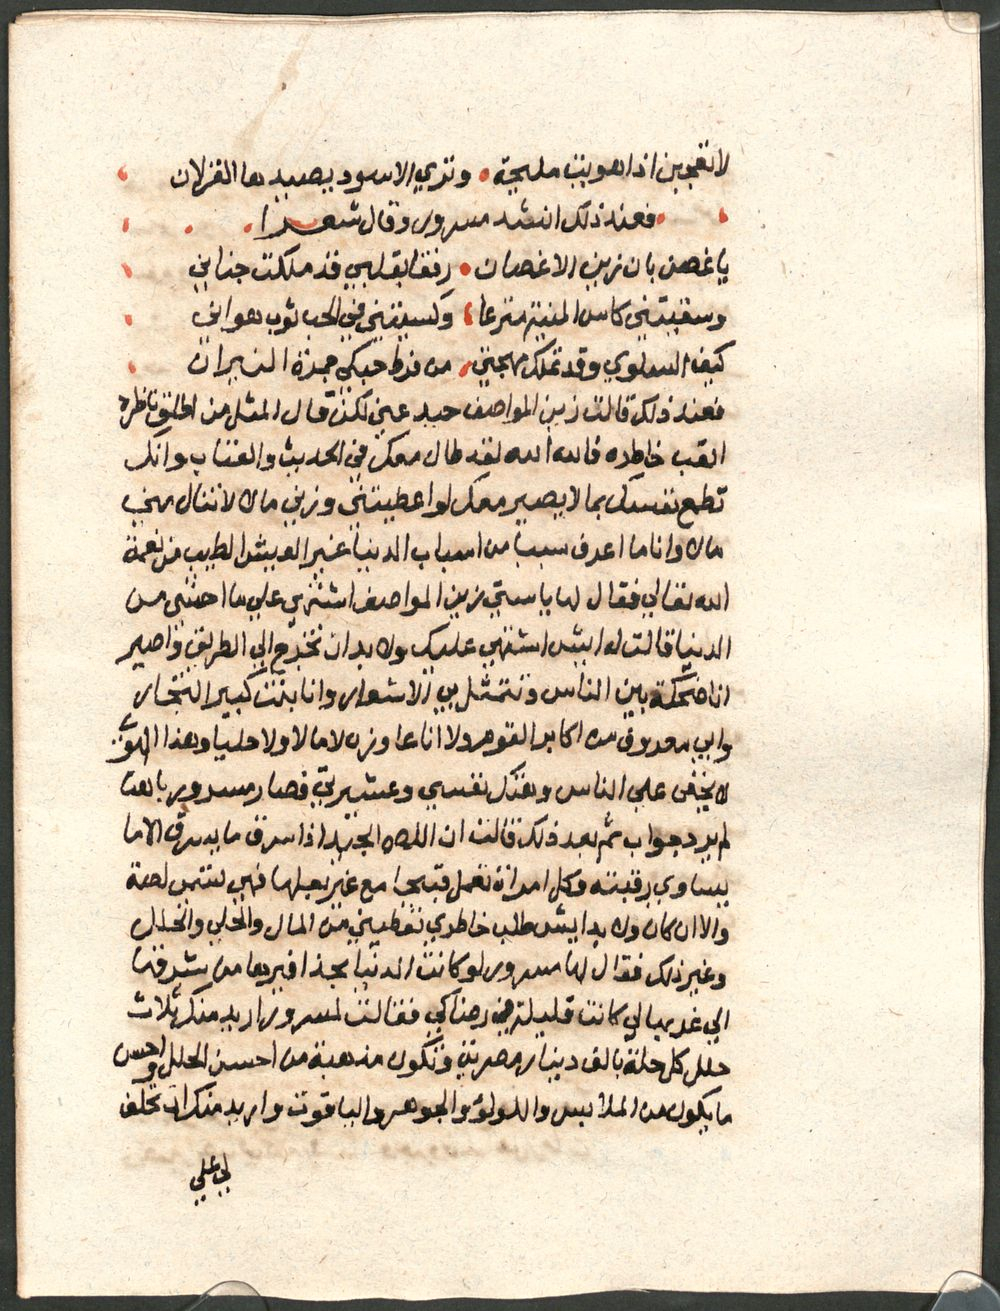 لا تعجبين اذا هويت مليحة وتري الاسود يصيدها الغزلان
فعند ذلك انشد مسرور وقال شعرا
يا غصن بان زين الاغصان رفقا بقلبي قد ملكت جناني
وسقيتني كاس المنية مترعا وكسيتني في الحب ثوب هواني
كيف السلوي وقد تملك مهجتي من فرط حبكي جمرة النيران
فعند ذلك قالت زين المواصف حيد عني لكن قال المثل من اطلق ناظره
اتعب خاطره فالله الله لقد طال معك في الحديث والعتاب وانك
تطمع نفسك بما لا يصير معك لو اعطيتني وزني مال لا تنال مني
مال وانا ما اعرف سببا من اسباب الدنيا غير العيش الطيب من نعمة
الله تعالي فقال لها يا ستي زين المواصف اشتهي علي ما احتي من
الدنيا قالت له ايش اشتهي عليك ولا بد ان تخرج الي الطريق واصير
انا ضحكة بين الناس وتتمثل بي الاشعار وانا بنت كبير التجار
وابي معروف من اكابر القوم ولا انا عاوزه لا مالا ولا حليا وهذا الهوي
لا يخفي علي الناس وبقتل نفسي وعشيرتي فصار مسرور باهتا
لم يرد جواب ثم بعد ذلك قالت ان اللص الجيد اذا سرق ما يسرق الا ما
يساوي رقبته وكل امراة تعمل قبيحا مع غير بعلها فهي تتمن لصة
والا ان كان ولا بد ايش طلب خاطري تعطيني من المال والحلي والحلل
وغير ذلك فقال لها مسرور لو كانت الدنيا بحذافيرها من شرقها
الي غربها لي كانت قليلة في رضاكي فقالت لمسرور اريد منك ثلاث
حلل كل حلة بالف دينار مصرية وتكون مذهبة من احسن الحلل واحسن
ما يكون من الملابيس واللولؤ والجوهر والياقوت واريد منك ان تحلف
لي علي